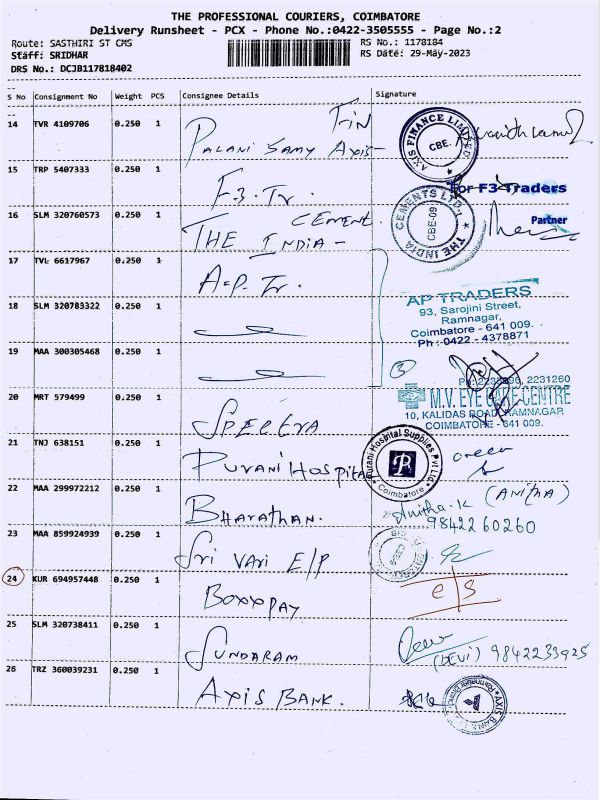 THE PROFESSIONAL COURIERS, COIMBATORE
Delivery Runsheet - PCX - Phone No.:0422-3505555 - Page No.:2
Route: SASTHIRI ST CMS
RS No.: 1178184
Staff: SRIDHAR
RS Date: 29-May-2023
DRS No.: DCJB117818402
S No Consignment No Weight PCS Consignee Details Signature
14 TVR 4109706 0.250 1 PALANI SAMY AXIS - FIN
AXIS FINANCE LIMITED CBE.
15 TRP 5407333 0.250 1 F-3. Tr.
For F3 Traders
Partner
16 SLM 320760573 0.250 1 THE INDIA - CEMENT
THE INDIA CEMENTS LTD. CBE-09
17 TVL 6617967 0.250 1 A-P. Tr.
AP TRADERS
93, Sarojini Street,
Ramnagar,
Coimbatore - 641 009.
Ph : 0422 - 4378871
18 SLM 320783322 0.250 1
19 MAA 300305468 0.250 1
3
20 MRT 579499 0.250 1 SPECTRA
2231260
M.V. EYE CARE CENTRE
10, KALIDAS ROAD, RAMNAGAR
COIMBATORE - 641 009.
21 TNJ 638151 0.250 1 PURANI HOSPITAL
Purani Hospital Supplies Pvt Ltd
Coimbatore
22 MAA 299972212 0.250 1 BHARATHAN.
Anitha.K (ANITHA)
9842260260
23 MAA 859924939 0.250 1 SRI VARI E/P
24 KUR 694957448 0.250 1 BOXXPAY
e/s
25 SLM 320738411 0.250 1 SUNDARAM
(DEVI) 9842233925
26 TRZ 360039231 0.250 1 AXIS BANK.
AXIS BANK